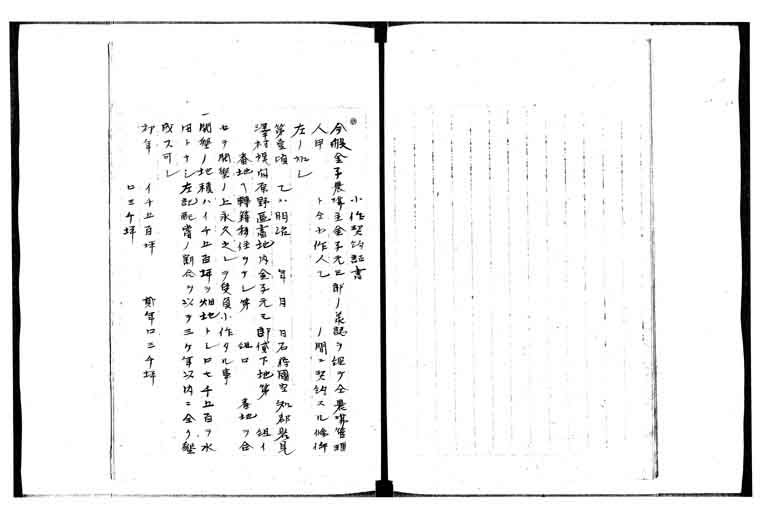 小作契約証書
今般金子農場主金子元三郎ノ承認ヲ得テ仝農場管理
人甲　ト仝小作人乙　ノ間ニ契約スル條件
左ノ如シ
第壱項　乙ハ明治　年　月　日石狩國空知郡岩見
澤村幌向原野區畫地内金子元三郎貸下地第　組イ
番地ヘ轉籍移住ヲナシ第　組ロ　番地ヲ合
セテ開墾ノ上永久之レヲ小作タル事
一開墾ノ地積ハイ千五百坪ヲ畑地トシロ七千五百ヲ水
田トナシ左記配當ノ割合ヲ以テ三ヶ年以内ニ全ク墾
成ス可シ
初年　イ千五百坪　貮年ロ三千坪
ロ三千坪